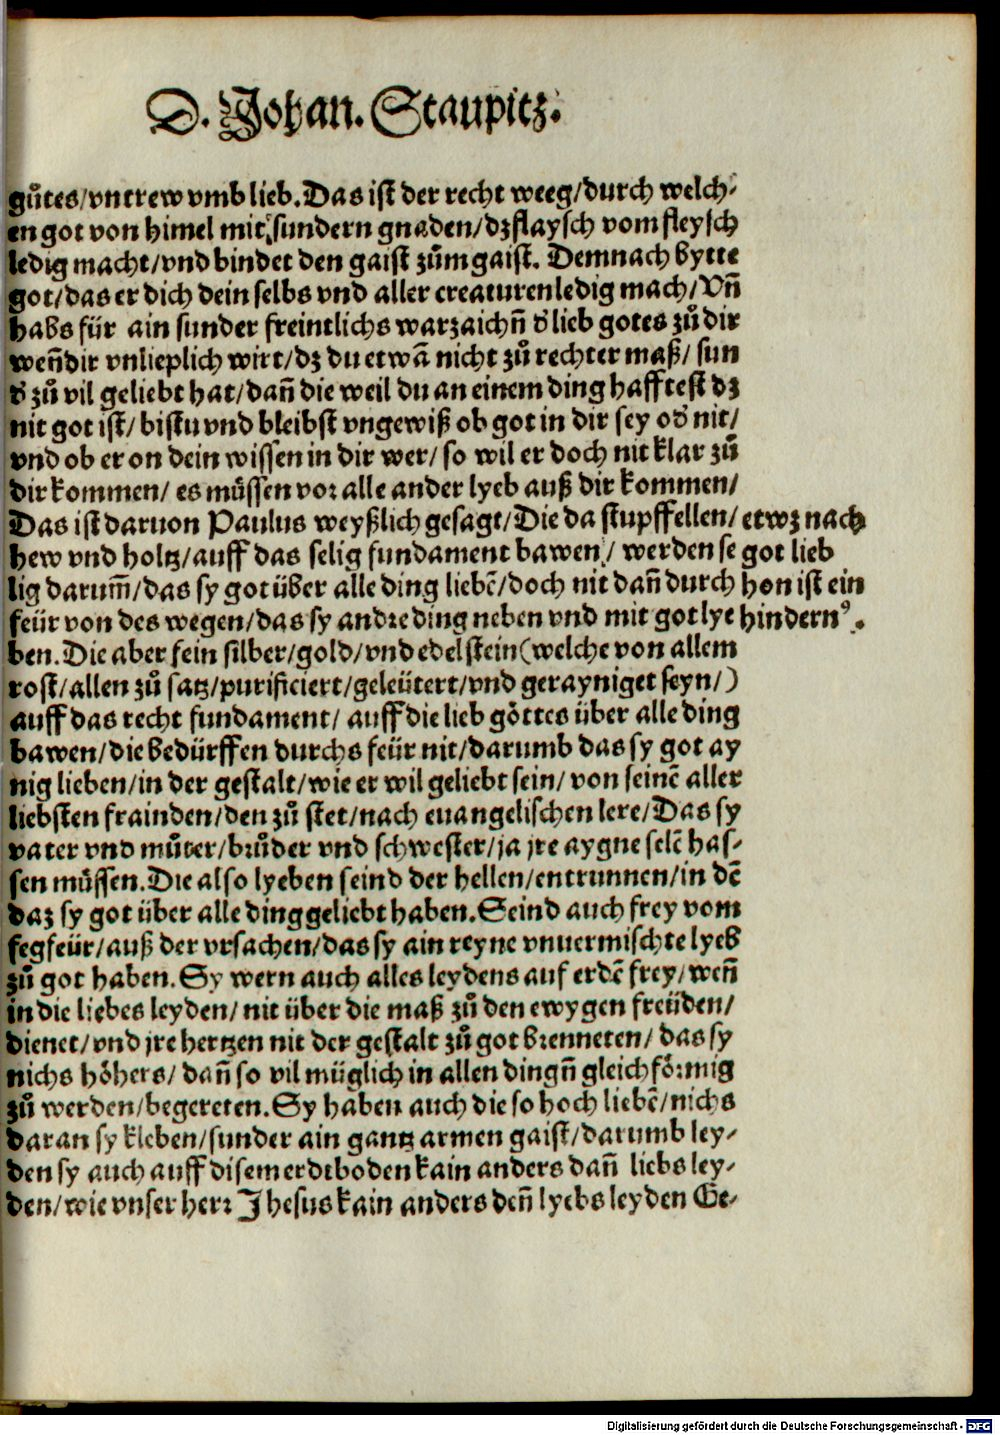 D. Johan. Staupitz.
guͦtes/vntrew vmb lieb. Das ist der recht weeg/durch welch-
en got von himel mit sundern gnaden/dz flaysch vom fleysch
ledig macht/vnd bindet den gaist zuͦm gaist. Demnach bytte
got/das er dich dein selbs vnd aller creaturen ledig mach/Vñ
habs für ain sunder freintlichs warzaichñ d' lieb gotes zuͦ dir
weñ dir vnlieplich wirt/dz du etwã nicht zuͦ rechter maß/sun
d' zuͦ vil geliebt hat/dañ die weil du an einem ding hafftest dz
nit got ist/bistu vnd bleibst vngewiß ob got in dir sey od' nit/
vnd ob er on dein wissen in dir wer/so wil er doch nit klar zuͦ
dir kommen/es müssen vor alle ander lyeb auß dir kommen/
Das ist daruon Paulus weyßlich gesagt/Die da stupffellen/
hew vnd holtz/auff das selig fundament bawen/werden se
lig darum̃/das sy got über alle ding liebẽ/doch nit dañ durch
feür von des wegen/das sy andre ding neben vnd mit got lye
ben. Die aber fein silber/gold/vnd edelstein(welche von allem
rost/allen zuͦ satz/purificiert/geleütert/vnd gerayniget seyn/)
auff das recht fundament/auff die lieb göttes über alle ding
bawen/die bedürffen durchs feür nit/darumb das sy got ay
nig lieben/in der gestalt/wie er wil geliebt sein/von seinẽ aller
liebsten frainden/den zuͦ stet/nach euangelischen lere/Das sy
vater vnd muͦter/bruͦder vnd schwester/ja jre aygne selẽ has-
sen müssen. Die also lyeben seind der hellen/entrunnen/in dẽ
daz sy got über alle ding geliebt haben. Seind auch frey vom
fegfeür/auß der vrsachen/das sy ain reyne vnuermischte lyeb
zuͦ got haben. Sy wern auch alles leydens auf erdẽ frey/weñ
in die liebes leyden/nit über die maß zuͦ den ewygen freüden/
dienet/vnd jre hertzen nit der gestalt zuͦ got brenneten/das sy
nichs höhers/dañ so vil müglich in allen dingñ gleichförmig
zuͦ werden/begereten. Sy haben auch die so hoch liebẽ/nichs
daran sy kleben/sunder ain gantz armen gaist/darumb ley-
den sy auch auff disem erdtboden kain anders dañ liebs ley-
den/wie vnser herr Jhesus kain anders deñ lyebs leyden Ge-
etwz nach
got lieb
hon ist ein
hindernꝰ.
Digitalisierung gefördert durch die Deutsche Forschungsgemeinschaft - DFG